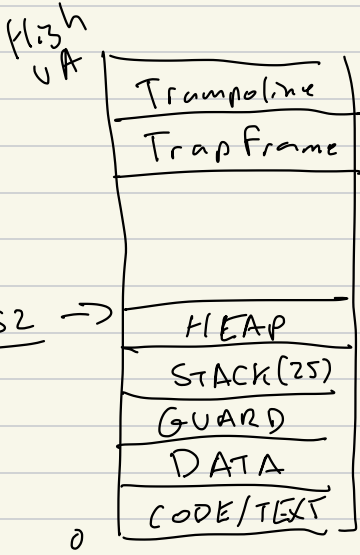 High
VA
Trampoline
TrapFrame
52 →
HEAP
STACK(25)
GUARD
DATA
CODE/TEXT
0